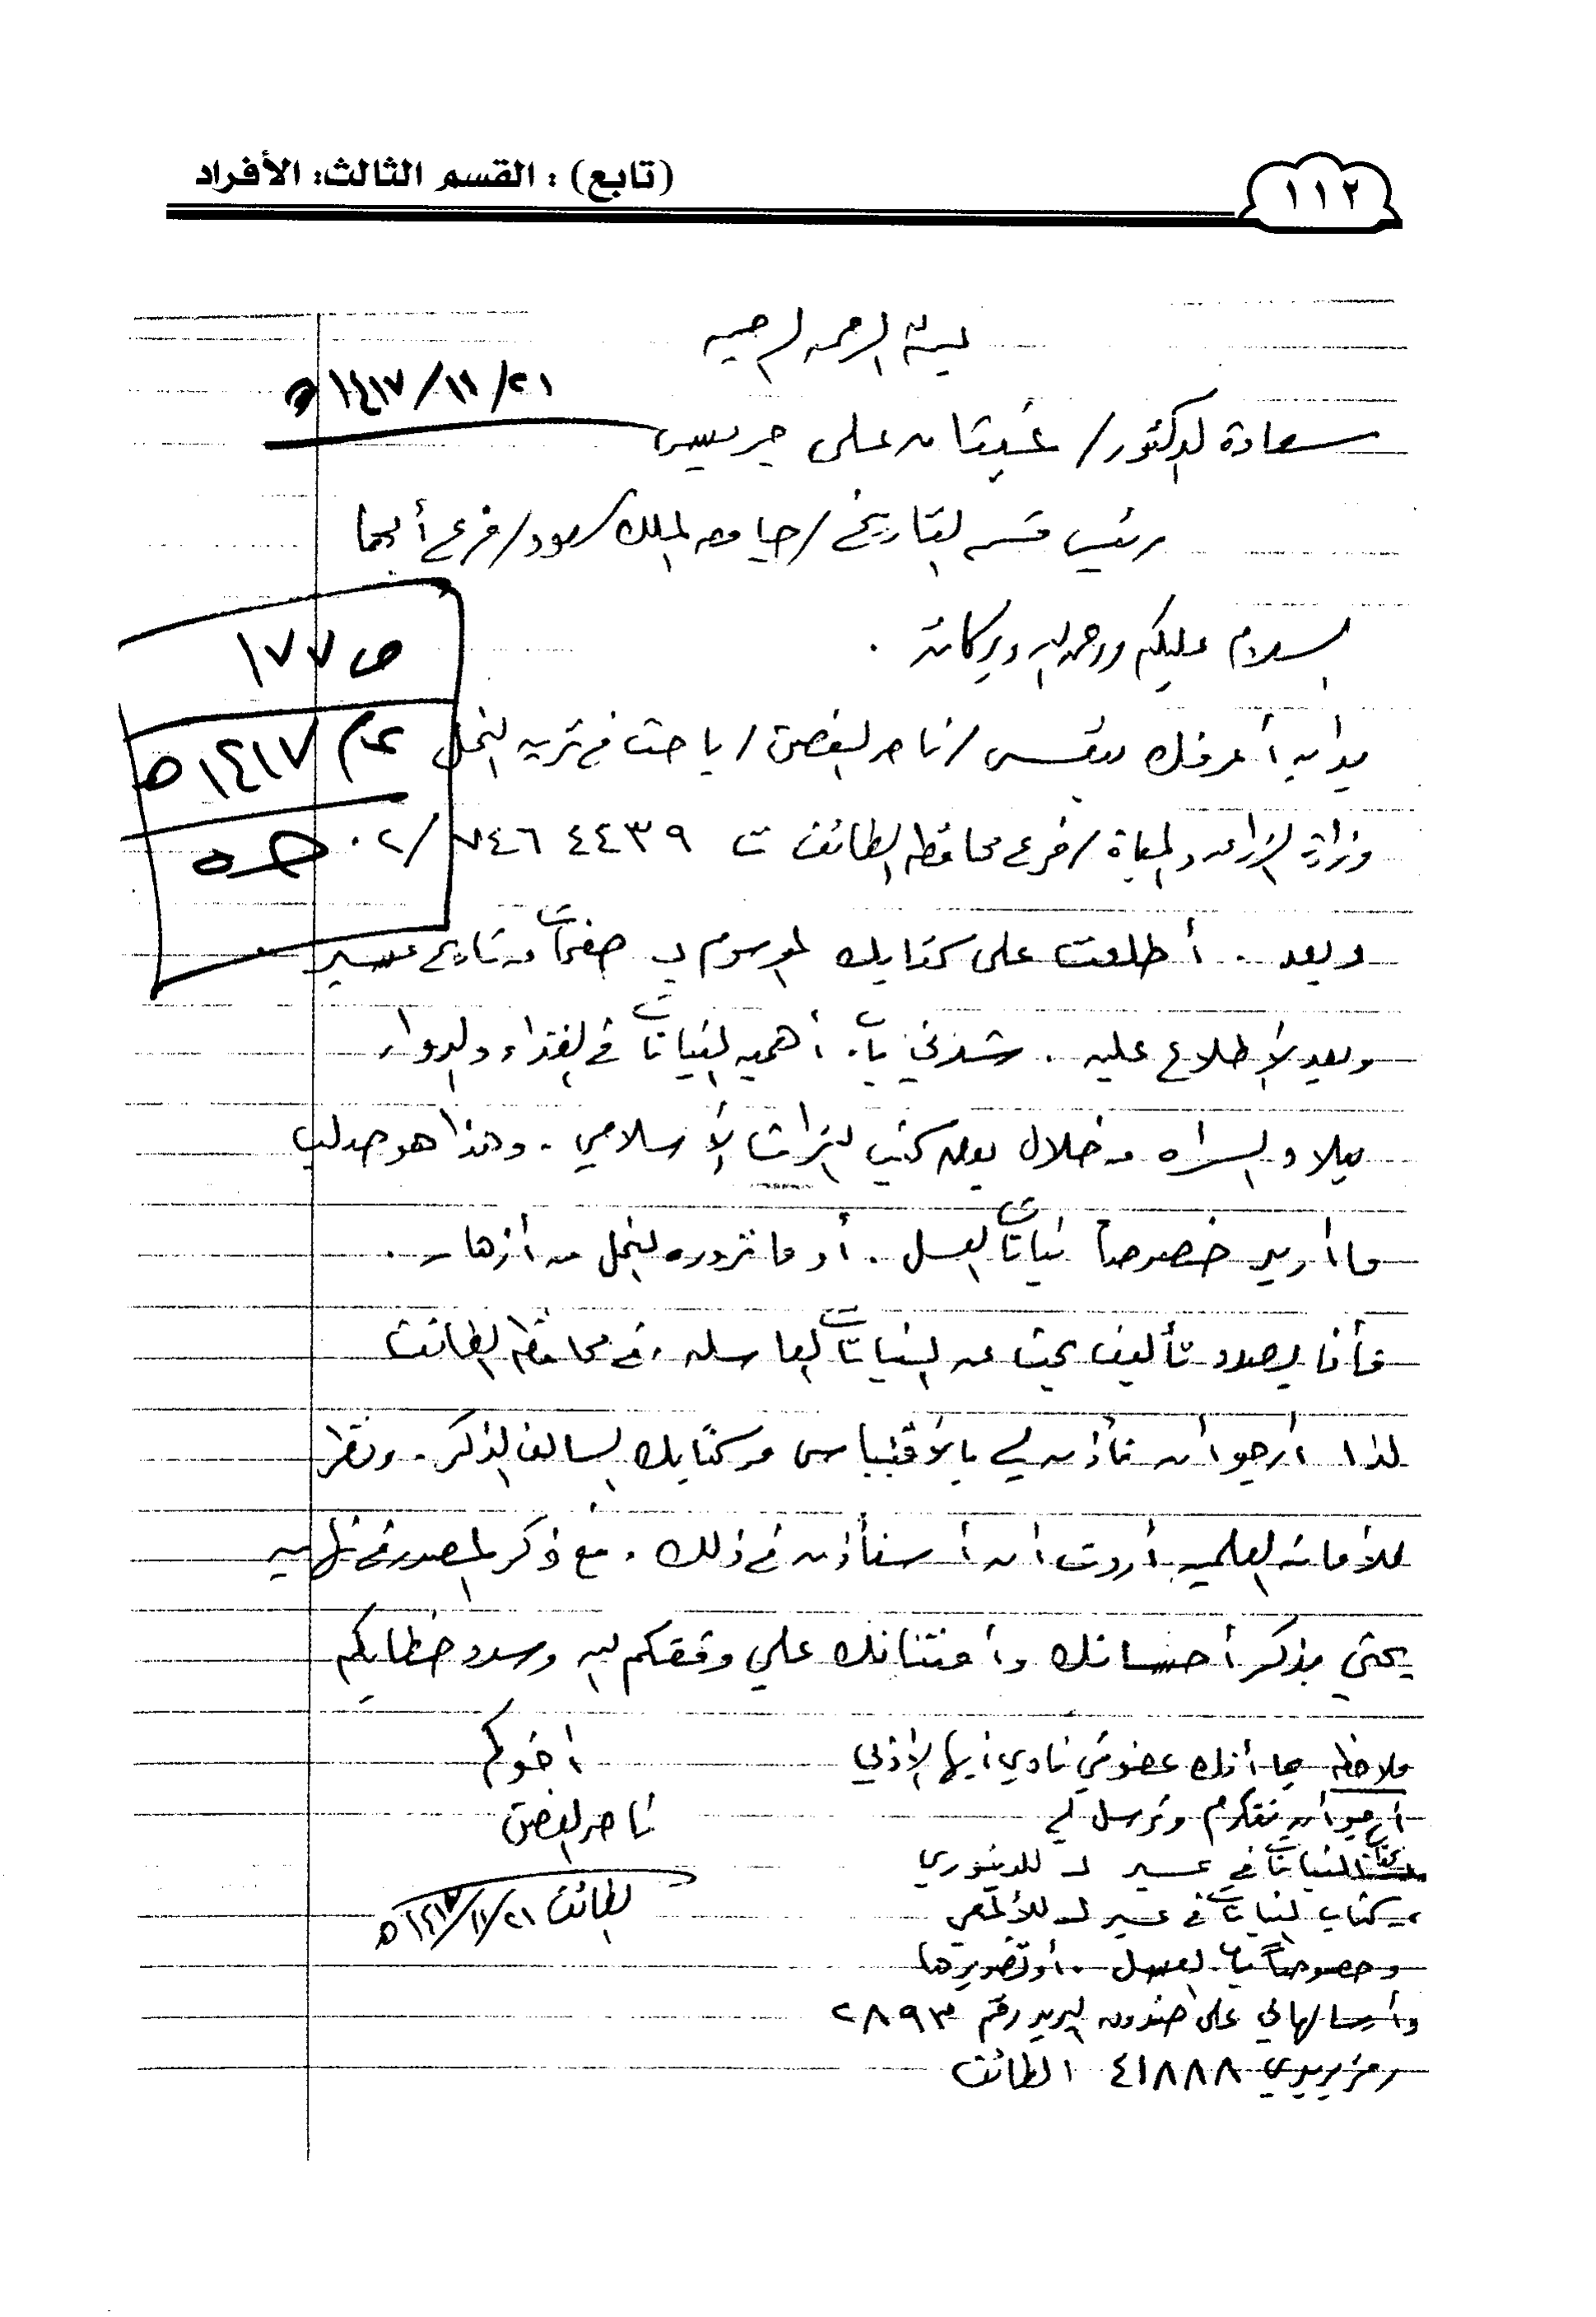 ١١٢
(تابع) : القسم الثالث: الأفراد
بسم الله الرحمن الرحيم
٢١/١١/١٤١٧هـ
سعادة الدكتور/ غيثان علي جريس
رئيس قسم التاريخ/جامعه الملك سعود/فرع أبها
السلام عليكم ورحمة الله وبركاته .
ص ١٧٧
عام ١٤١٧هـ
بداية أعرفك بنفسي/ناصر الغصن/باحث في تربيه النحل
وزارة الزراعه والمياة/فرع محافظه الطائف ت ٧٤٦٤٤٣٩/٠٢
وبعد . أطلعت على كتابك الموسوم بـ صفحات من تاريخ عسير
وبعد الأطلاع عليه . شدني باب أهميه النباتات في الغذاء والدواء
ببلاد السراه من خلال بعض كتب التراث الأسلامي . وهذا هو صلب
ما أريد خصوصاً نباتات العسل . أو ما تزوره النحل من أزهار .
فأنا بصدد تأليف بحث عن النباتات العاسله في محافظه الطائف
لذا أرجوا أن تأذن لي بالأقتباس من كتابك السالف الذكر . ونظر
للأمانه العلميه أردت أن أستأذن في ذلك . مع ذكر المصدر في نهايه
بحثي بذكر أحسانك وأمتنانك علي وفقكم الله وسدد خطاكم
أخوكم
ناصر الغصن
الطائف ٢١/١١/١٤١٧هـ
ملاحظه بما أنك عضو في نادي أبها الأدبي
أرجوا أن تتكرم وترسل لي
كتاب النباتات في عسير لـ للدينوري
كتاب النباتات في عسير لـ للألمعي
وخصوصاً باب العسل . أو تصويرها
وأرسالها لي على صندوق البريد رقم ٢٨٩٣
رمز بريدي ٤١٨٨٨ الطائف